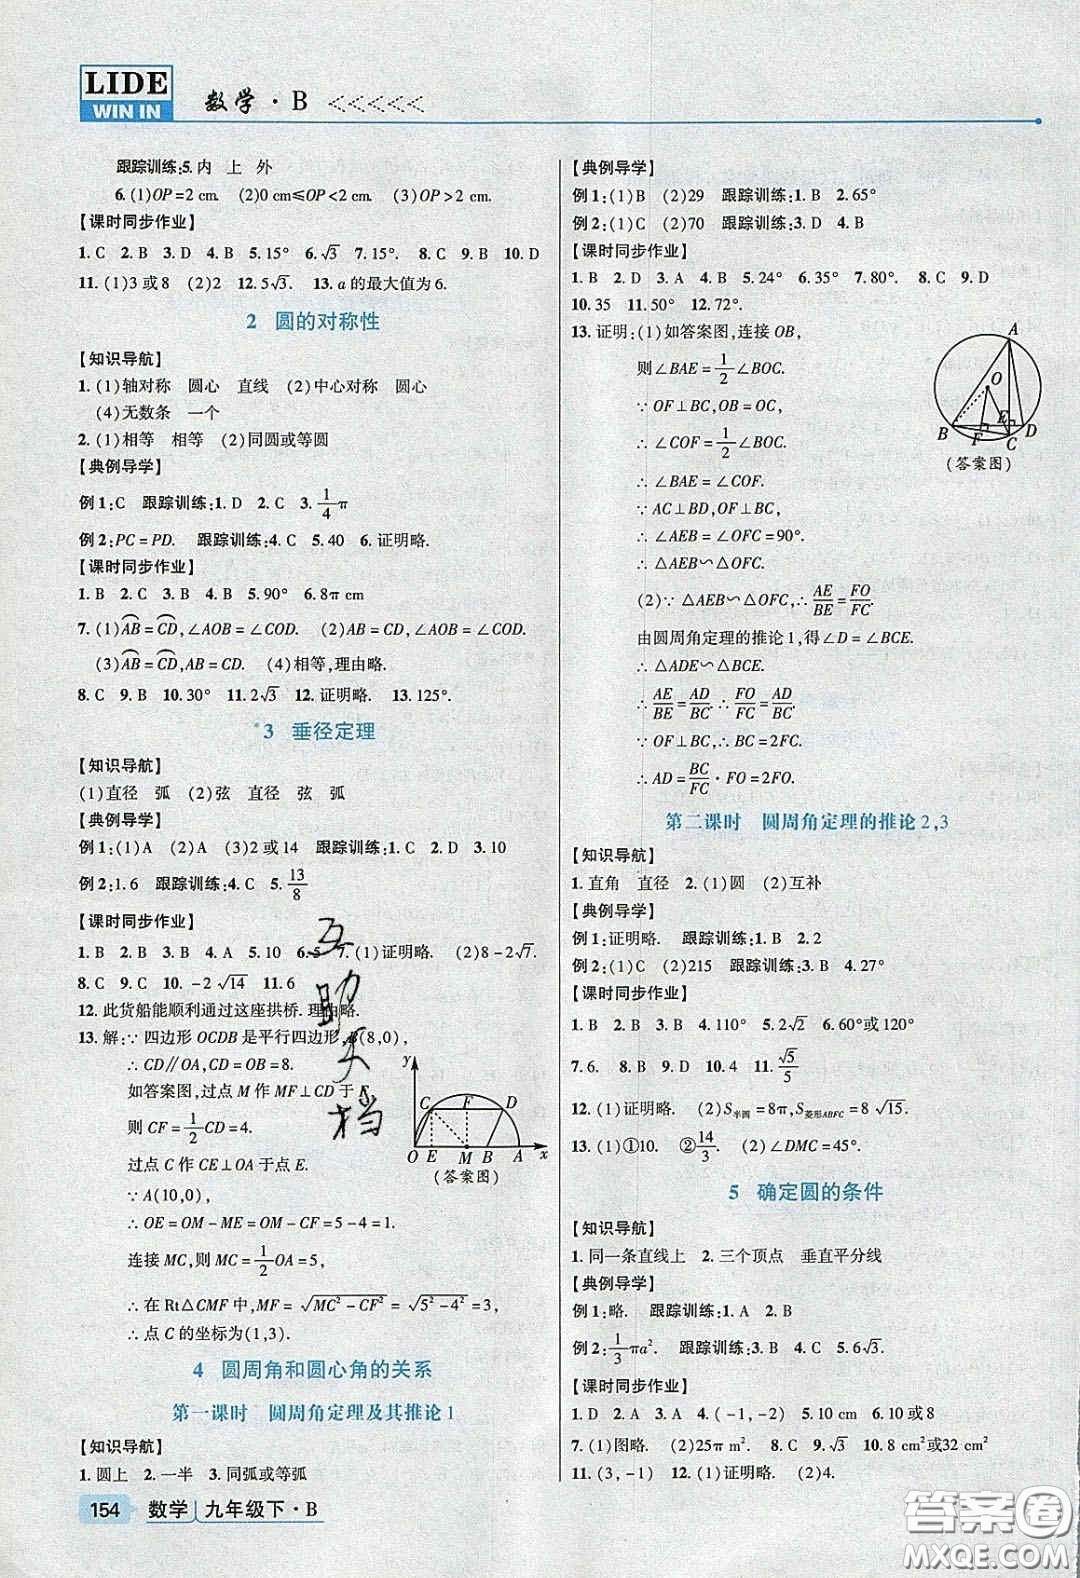 LIDE
WIN IN
数学·B
跟踪训练:5.内 上 外
6.(1)OP=2 cm. (2)0 cm≤OP<2 cm. (3)OP>2 cm.
【课时同步作业】
1.C 2.B 3.D 4.A 5.15° 6.√3 7.15° 8.C 9.C 10.D
11.(1)3或8 (2)2 12.5√3. 13.a的最大值为6.
2 圆的对称性
【知识导航】
1.(1)轴对称 圆心 直线 (2)中心对称 圆心
(4)无数条 一个
2.(1)相等 相等 (2)同圆或等圆
【典例导学】
例1:C 跟踪训练:1.D 2.C 3.1/4π
例2:PC=PD. 跟踪训练:4.C 5.40 6.证明略.
【课时同步作业】
1.B 2.C 3.C 4.B 5.90° 6.8π cm
7.(1)A͡B=C͡D,∠AOB=∠COD. (2)AB=CD,∠AOB=∠COD.
(3)A͡B=C͡D,AB=CD. (4)相等,理由略.
8.C 9.B 10.30° 11.2√3 12.证明略. 13.125°.
*3 垂径定理
【知识导航】
(1)直径 弧 (2)弦 直径 弦 弧
【典例导学】
例1:(1)A (2)A (3)2或14 跟踪训练:1.C 2.D 3.10
例2:1.6 跟踪训练:4.C 5.13/8
【课时同步作业】
1.B 2.B 3.B 4.A 5.10 6.5 7.(1)证明略. (2)8-2√7.
8.C 9.C 10.-2√14 11.6
12.此货船能顺利通过这座拱桥.理由略.
13.解:∵四边形OCDB是平行四边形,B(8,0),
∴CD∥OA,CD=OB=8.
如答案图,过点M作MF⊥CD于F,
则CF=1/2CD=4.
过点C作CE⊥OA于点E.
∵A(10,0),
∴OE=OM-ME=OM-CF=5-4=1.
连接MC,则MC=1/2OA=5,
∴在Rt△CMF中,MF=√(MC²-CF²)=√(5²-4²)=3,
∴点C的坐标为(1,3).
y C F D
O E M B A x
(答案图)
互助文档
4 圆周角和圆心角的关系
第一课时 圆周角定理及其推论1
【知识导航】
1.圆上 2.一半 3.同弧或等弧
154 数学 九年级下·B
【典例导学】
例1:(1)B (2)29 跟踪训练:1.B 2.65°
例2:(1)C (2)70 跟踪训练:3.D 4.B
【课时同步作业】
1.B 2.D 3.A 4.B 5.24° 6.35° 7.80° 8.C 9.D
10.35 11.50° 12.72°.
13.证明:(1)如答案图,连接OB,
则∠BAE=1/2∠BOC.
∵OF⊥BC,OB=OC,
∴∠COF=1/2∠BOC.
∴∠BAE=∠COF.
∵AC⊥BD,OF⊥BC,
∴∠AEB=∠OFC=90°.
∴△AEB∽△OFC.
(2)∵△AEB∽△OFC,∴AE/BE=FO/FC.
由圆周角定理的推论1,得∠D=∠BCE.
∴△ADE∽△BCE.
∴AE/BE=AD/BC.∴FO/FC=AD/BC.
∵OF⊥BC,∴BC=2FC.
∴AD=BC/FC·FO=2FO.
A O B F E C D
(答案图)
第二课时 圆周角定理的推论2,3
【知识导航】
1.直角 直径 2.(1)圆 (2)互补
【典例导学】
例1:证明略. 跟踪训练:1.B 2.2
例2:(1)C (2)215 跟踪训练:3.B 4.27°
【课时同步作业】
1.B 2.B 3.B 4.110° 5.2√2 6.60°或120°
7.6. 8.B 9.D 10.4 11.√5/5
12.(1)证明略. (2)S半圆=8π,S菱形ABFC=8√15.
13.(1)①10. ②14/3. (2)∠DMC=45°.
5 确定圆的条件
【知识导航】
1.同一条直线上 2.三个顶点 垂直平分线
【典例导学】
例1:略. 跟踪训练:1.A 2.B
例2:1/3πa². 跟踪训练:3.B 4.C 5.6√3.
【课时同步作业】
1.D 2.A 3.D 4.(-1,-2) 5.10 cm 6.10或8
7.(1)图略. (2)25π m². 8.B 9.C 10.8 cm²或32 cm²
11.(3,-1) 12.(1)证明略. (2)4.
答案圈
MXQE.COM